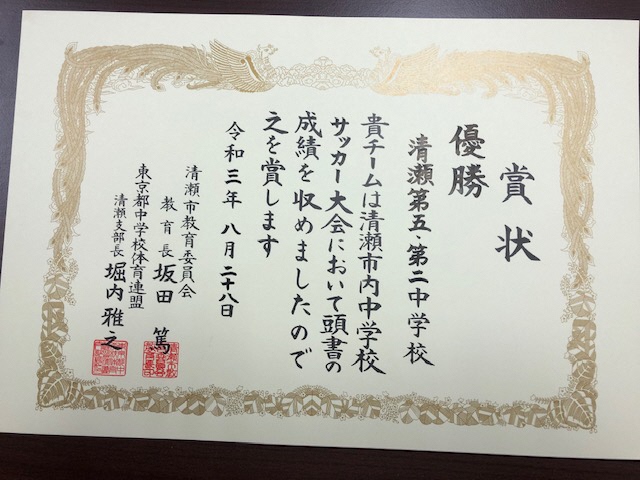 賞状
優勝
清瀬第五、第二中学校
貴チームは清瀬市内中学校
サッカー大会において頭書の
成績を収めましたので
之を賞します
令和三年八月二十八日
清瀬市教育委員会
教育長 坂田篤
東京都中学校体育連盟
清瀬支部長 堀内雅之